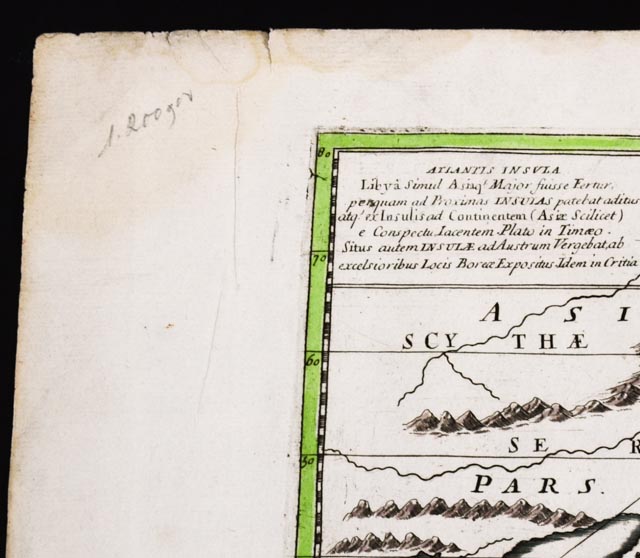 80
ATLANTIS INSULA
Libyâ Simul Asiaq. Major fuisse Fertur,
perquam ad Proximas INSULAS patebat aditus
atq. ex Insulis ad Continentem (Asiæ Scilicet)
e Conspectu Jacentem Plato in Timæo.
Situs autem INSULÆ ad Austrum Vergebat, ab
excelsioribus Locis Boreæ Expositus Idem in Critia
70
A S I
SCY THÆ
60
S E R
50
PARS.